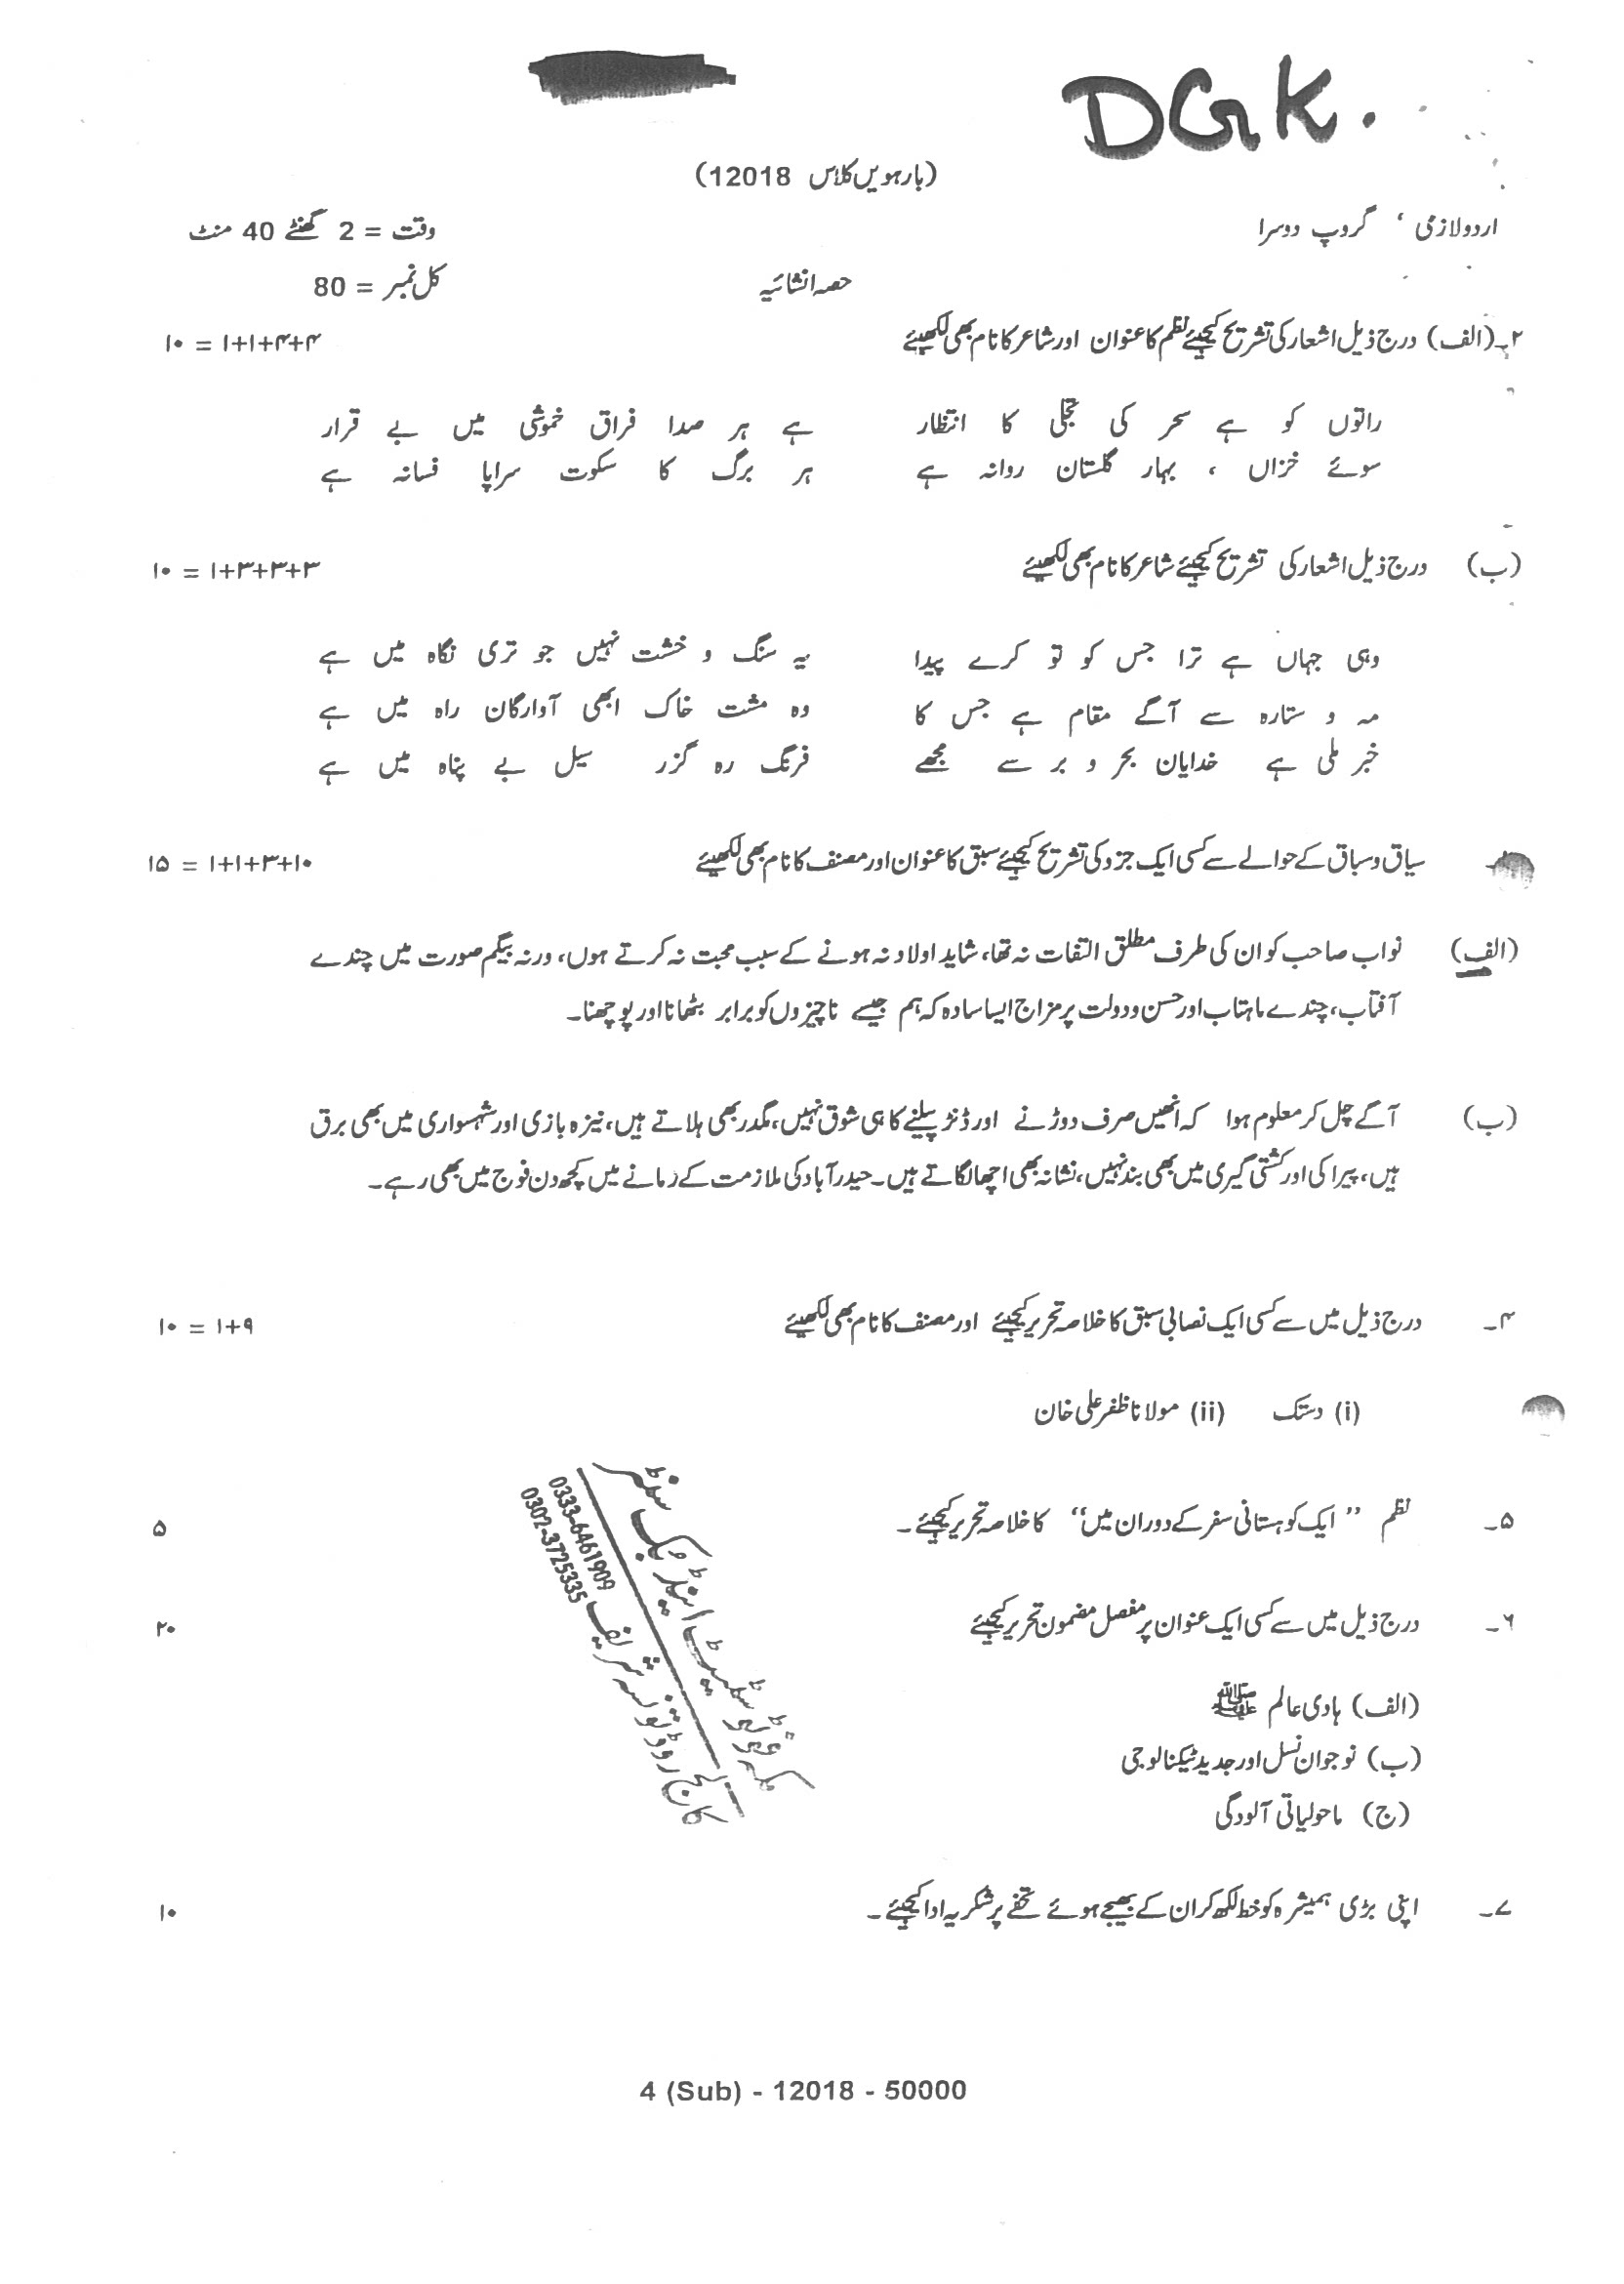 DGK.
(بارھویں کلاس 12018)
اردو لازمی ، گروپ دوسرا
وقت = 2 گھنٹے 40 منٹ
حصہ انشائیہ
کل نمبر = 80
۲۔(الف) درج ذیل اشعار کی تشریح کیجیئے نظم کا عنوان اور شاعر کا نام بھی لکھیئے ۴+۴+۱+۱ = ۱۰
راتوں کو ہے سحر کی تجلی کا انتظار ہے ہر صدا فراق خموشی میں بے قرار
سوئے خزاں ، بہار گلستان روانہ ہے ہر برگ کا سکوت سراپا فسانہ ہے
(ب) درج ذیل اشعار کی تشریح کیجیئے شاعر کا نام بھی لکھیئے ۳+۳+۳+۱ = ۱۰
وہی جہاں ہے ترا جس کو تو کرے پیدا یہ سنگ و خشت نہیں جو تری نگاہ میں ہے
مہ و ستارہ سے آگے مقام ہے جس کا وہ مشت خاک ابھی آوارگان راہ میں ہے
خبر ملی ہے خدایان بحر و بر سے مجھے فرنگ رہ گزر سیل بے پناہ میں ہے
سیاق و سباق کے حوالے سے کسی ایک جزو کی تشریح کیجیئے سبق کا عنوان اور مصنف کا نام بھی لکھیئے ۱۰+۳+۱+۱ = ۱۵
(الف) نواب صاحب کو ان کی طرف مطلق التفات نہ تھا، شاید اولاد نہ ہونے کے سبب محبت نہ کرتے ہوں، ورنہ بیگم صورت میں چندے
آفتاب، چندے ماہتاب اور حسن و دولت پر مزاج ایسا سادہ کہ ہم جیسے ناچیزوں کو برابر بٹھانا اور پوچھنا۔
(ب) آگے چل کر معلوم ہوا کہ انھیں صرف دوڑنے اور ڈنڑ پیلنے کا ہی شوق نہیں، مگدر بھی ہلاتے ہیں، نیزہ بازی اور شہسواری میں بھی برق
ہیں، پیراکی اور کشتی گیری میں بھی بند نہیں، نشانہ بھی اچھا لگاتے ہیں۔ حیدر آباد کی ملازمت کے زمانے میں کچھ دن فوج میں بھی رہے۔
۴۔ درج ذیل میں سے کسی ایک نصابی سبق کا خلاصہ تحریر کیجیئے اور مصنف کا نام بھی لکھیئے ۹+۱ = ۱۰
(i) دستک (ii) مولانا ظفر علی خان
۵۔ نظم ’’ ایک کوہستانی سفر کے دوران میں‘‘ کا خلاصہ تحریر کیجیئے۔ ۵
۶۔ درج ذیل میں سے کسی ایک عنوان پر مفصل مضمون تحریر کیجیئے ۲۰
(الف) ہادی عالم ﷺ
(ب) نوجوان نسل اور جدید ٹیکنالوجی
(ج) ماحولیاتی آلودگی
مکہ فوٹو سٹیٹ اینڈ بک سنٹر
0333-6461909
0302-3725335
کالج روڈ تونسہ شریف
۷۔ اپنی بڑی ہمشیرہ کو خط لکھ کر ان کے بھیجے ہوئے تحفے پر شکریہ ادا کیجیئے۔ ۱۰
4 (Sub) - 12018 - 50000